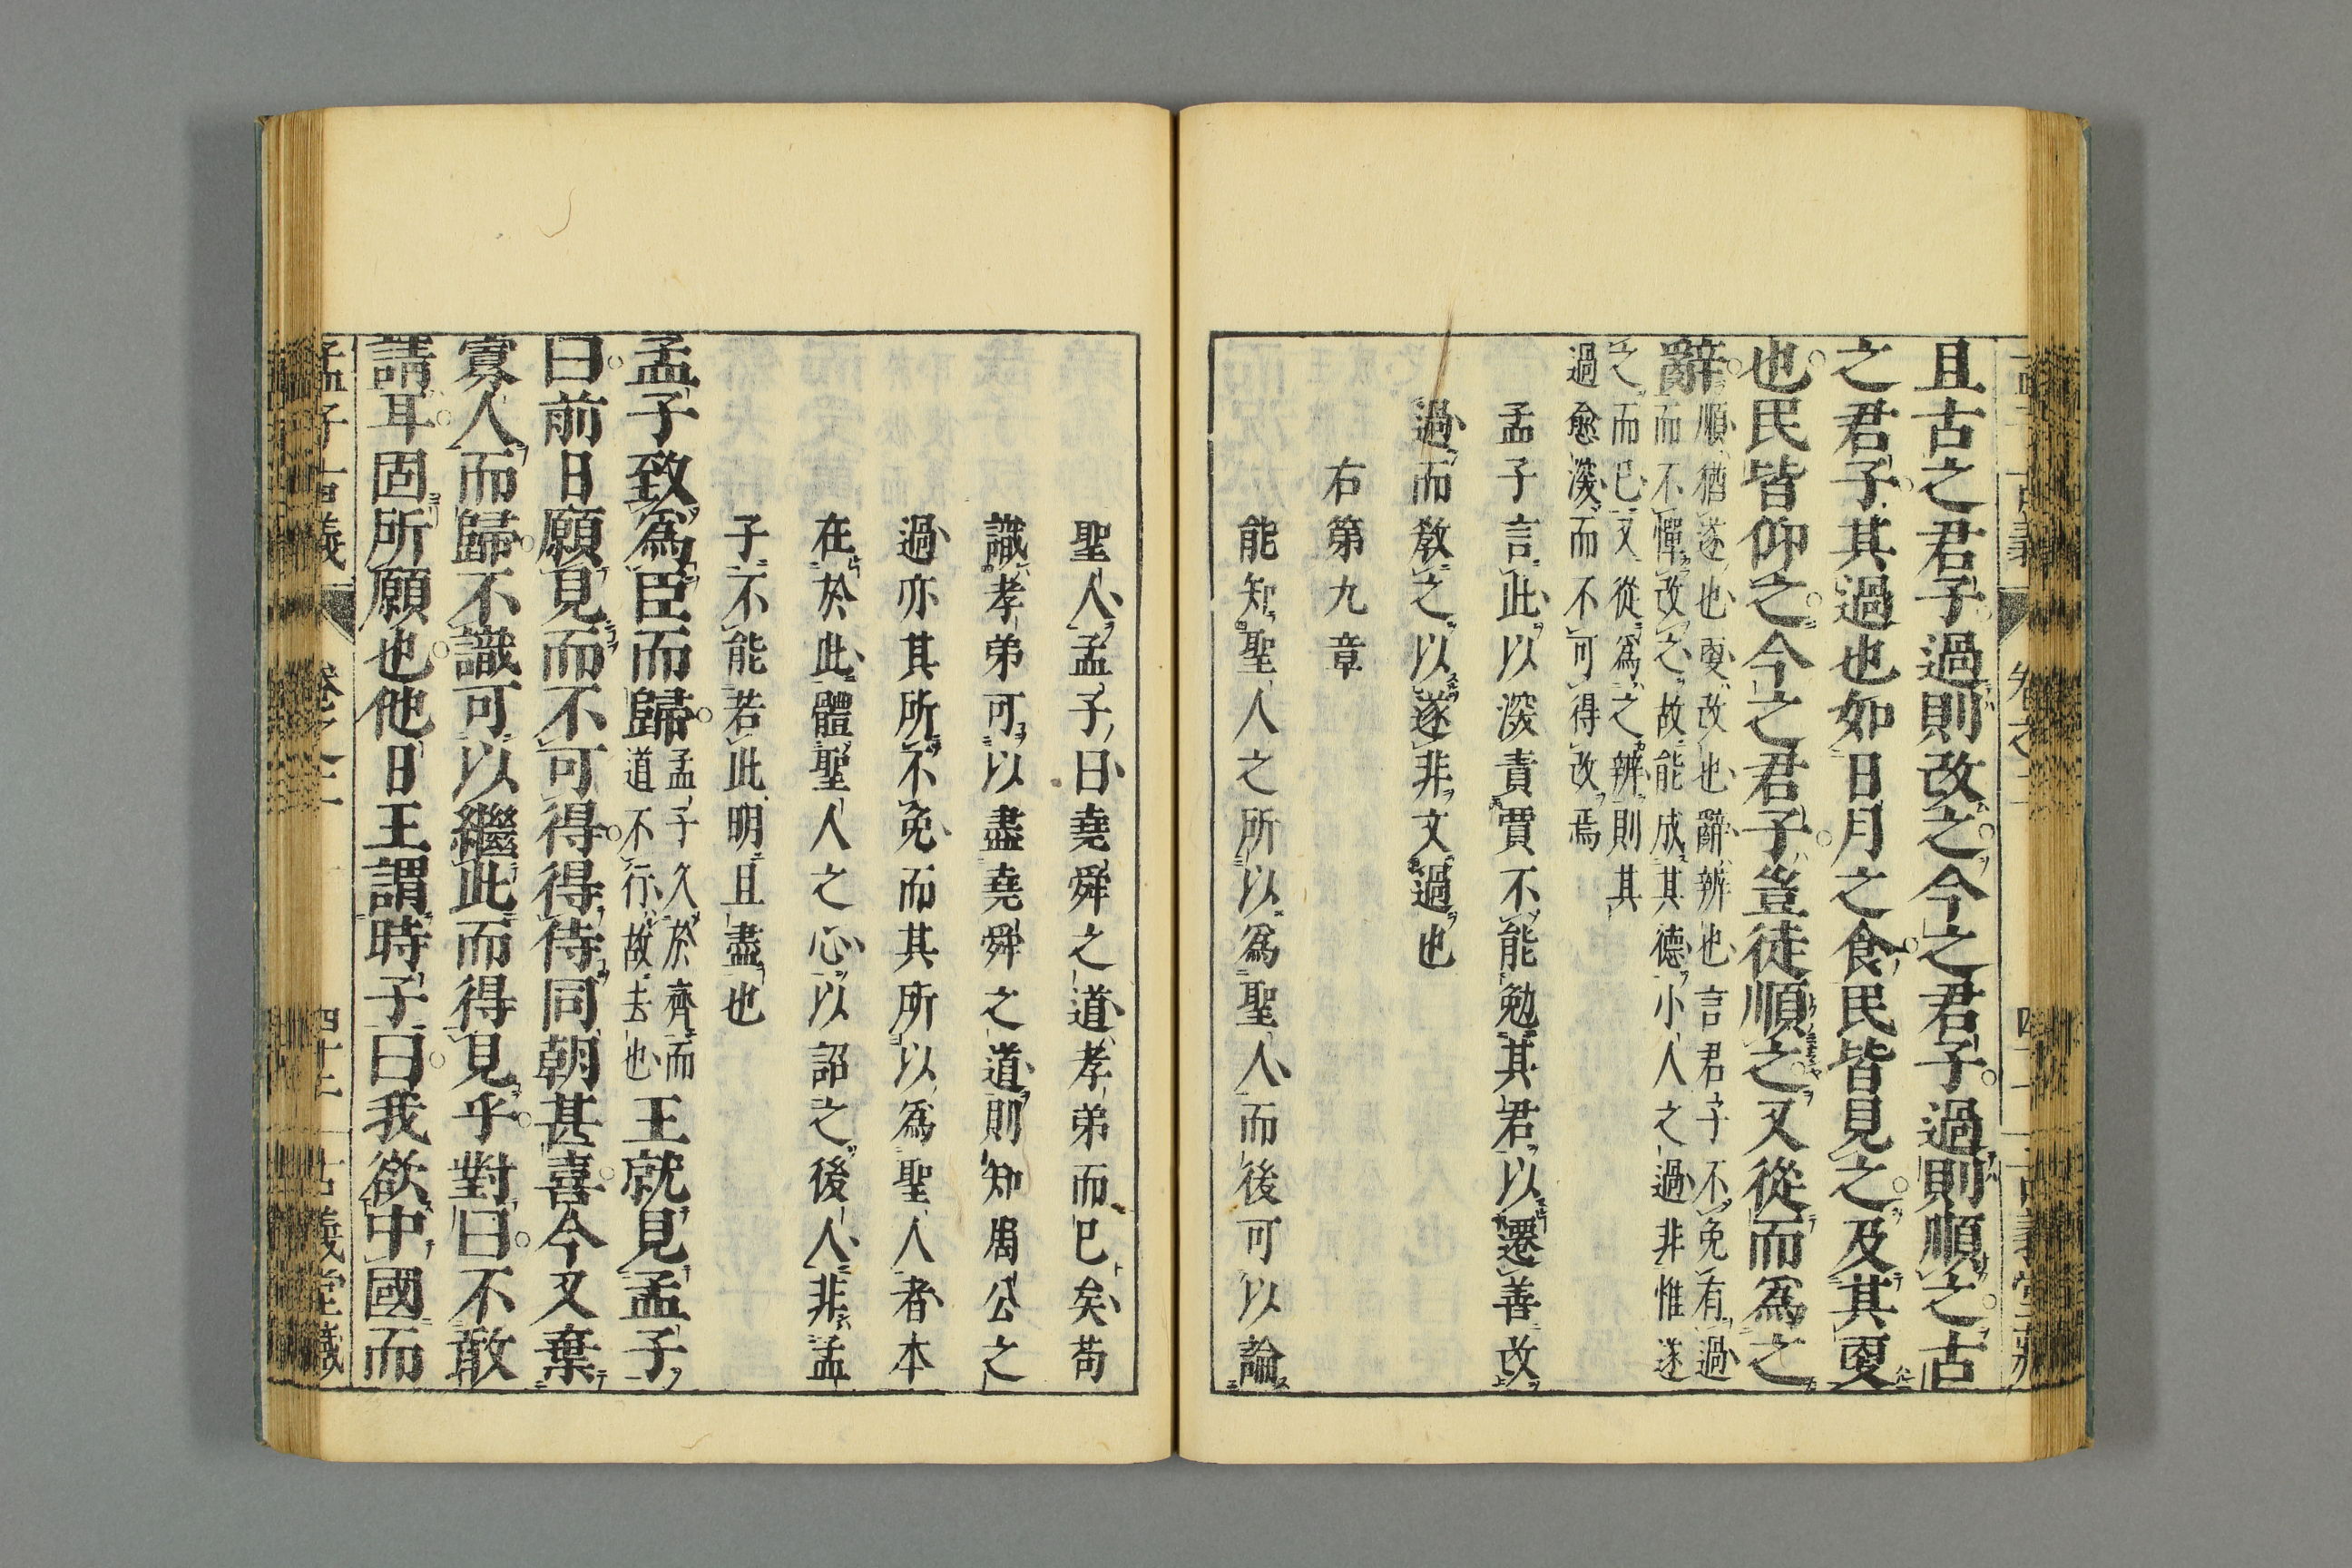 且古之君子過則改之今之君子過則順之古
之君子其過也如日月之食民皆見之及其更
也民皆仰之今之君子豈徒順之又從而爲之
辭
順猶遂也更改也辭辨也言君子不免有過
而不憚改之故能成其德小人之過非惟遂
之而已又從爲之辨則其
過愈深而不可得改焉
孟子言此以深責賈不能勉其君以遷善改
過而敎之以遂非文過也
右第九章
能知聖人之所以爲聖人而後可以論
聖人孟子曰堯舜之道孝弟而已矣苟
識孝弟可以盡堯舜之道則知周公之
過亦其所不免而其所以爲聖人者本
在於此體聖人之心以詔之後人非孟
子不能若此明且盡也
孟子致爲臣而歸
孟子久於齊而
道不行故去也
王就見孟子
曰前日願見而不可得得侍同朝甚喜今又棄
寡人而歸不識可以繼此而得見乎對曰不敢
請耳固所願也他日王謂時子曰我欲中國而
孟子古義 卷之二 四十二 古義堂藏